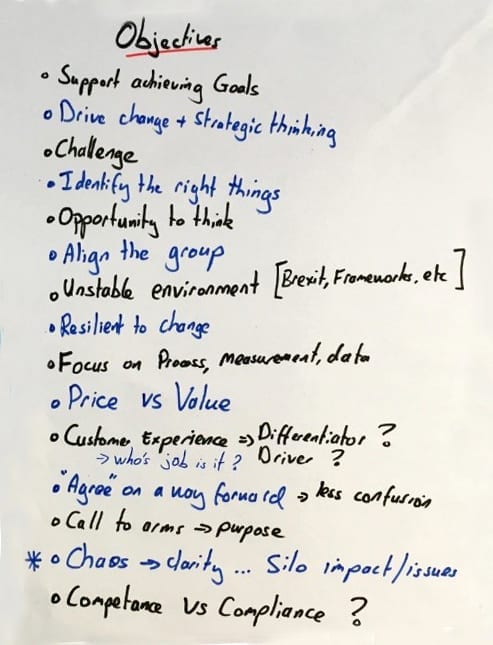 Objectives
• Support achieving Goals
• Drive change + strategic thinking
• Challenge
• Identify the right things
• Opportunity to think
• Align the group
• Unstable environment [Brexit, Frameworks, etc]
• Resilient to change
• Focus on Process, measurement, data
• Price vs Value
• Customer Experience => Differentiator ?
→ who's job is it? Driver ?
• "Agree" on a way forward → less confusion
• Call to arms → purpose
* • Chaos → clarity ... Silo impact/issues
• Competance vs Compliance ?